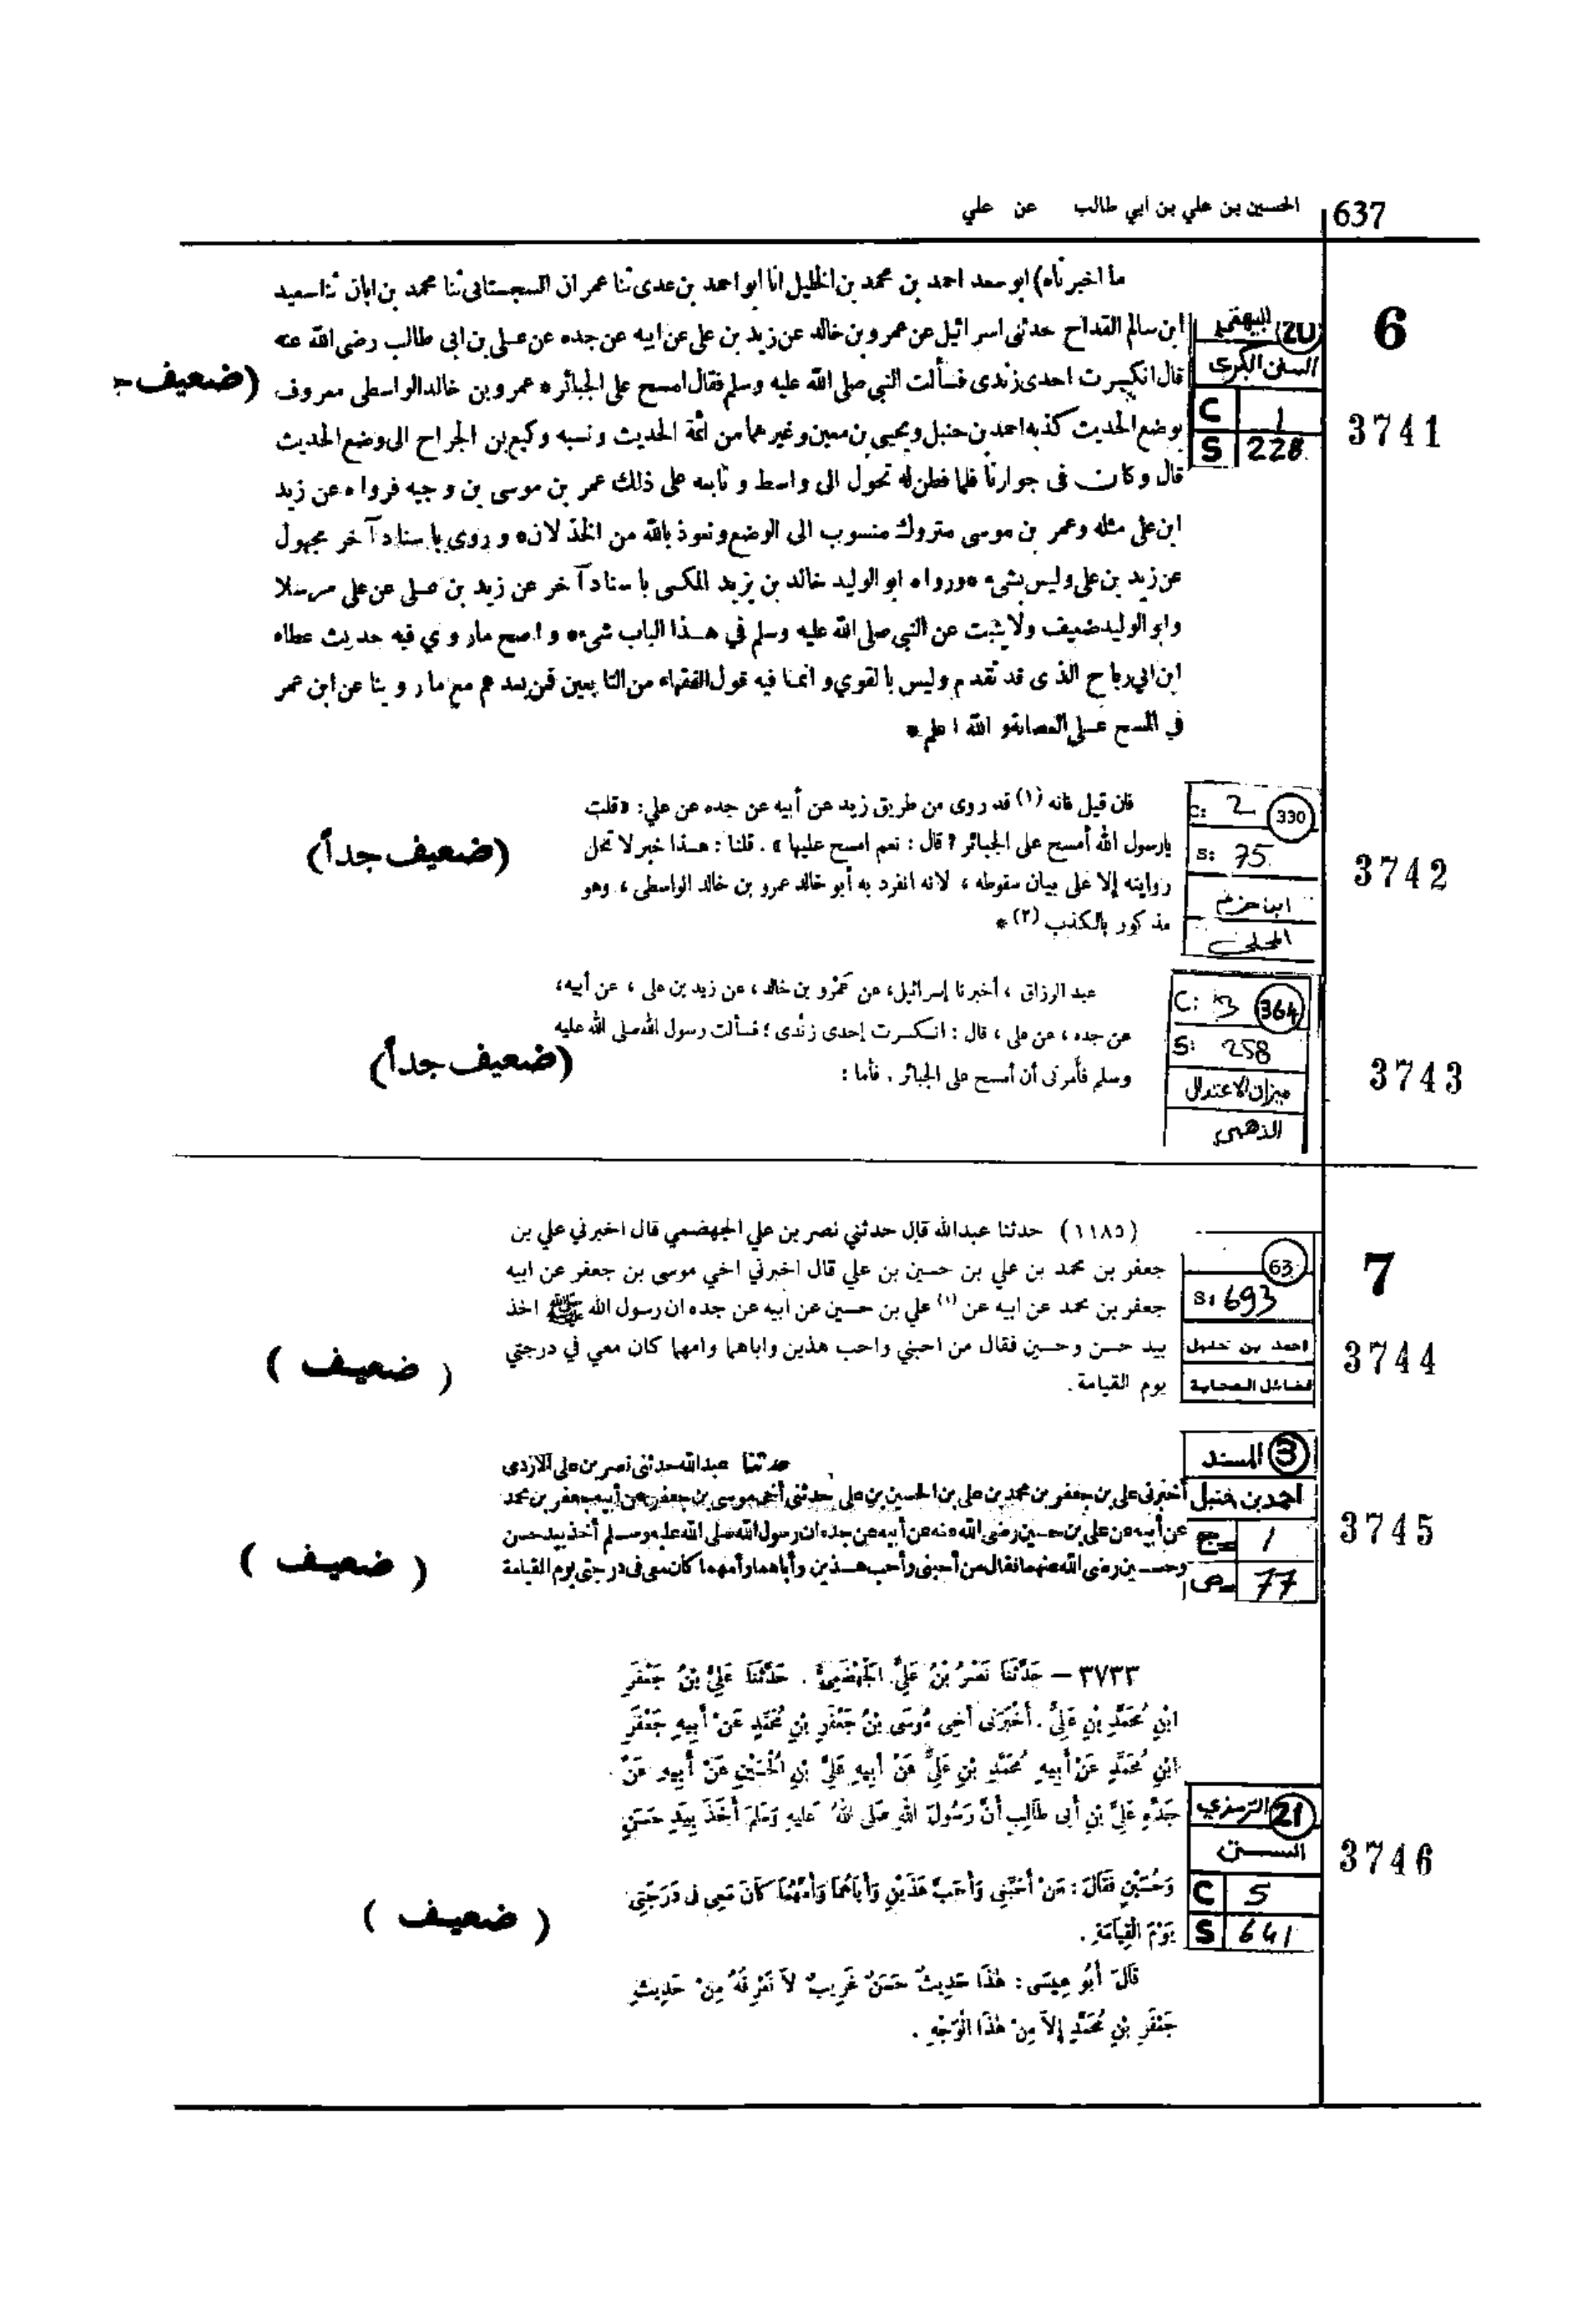 637
الحسين بن علي بن ابي طالب عن علي
6
3741
البيهقي
السنن الكبرى
C 1
S 228
ما اخبرناه) ابو سعد احمد بن محمد بن الخليل انا ابو احمد بن عدى ثنا عمران السجستانى ثنا محمد بن ابان ثنا سعيد
ابن سالم القداح حدثنى اسرائيل عن عمرو بن خالد عن زيد بن على عن ابيه عن جده عن على بن ابى طالب رضى الله عنه
قال انكسرت احدى زندى فسألت النبي صلى الله عليه وسلم فقال امسح على الجبائر * عمرو بن خالد الواسطى معروف
بوضع الحديث كذبه احمد بن حنبل ويحيى بن معين وغيرهما من ائمة الحديث ونسبه وكيع بن الجراح الى وضع الحديث
قال وكان فى جوارنا فلما فطن له تحول الى واسط و تابعه على ذلك عمر بن موسى بن وجيه فرواه عن زيد
ابن على مثله وعمر بن موسى متروك منسوب الى الوضع ونعوذ بالله من الخذلان * و روى باسناد آخر مجهول
عن زيد بن على وليس بشىء * ورواه ابو الوليد خالد بن يزيد المكى باسناد آخر عن زيد بن على عن على مرسلا
وابو الوليد ضعيف ولا يثبت عن النبي صلى الله عليه وسلم في هذا الباب شىء * واصح ما روي فيه حديث عطاء
ابن ابي رباح الذى قد تقدم وليس بالقوي وانما فيه قول الفقهاء من التابعين فمن بعدهم مع ما روينا عن ابن عمر
في المسح على العصابة و الله اعلم *
(ضعيف ج
3742
C: 2 330
S: 75
ابن حزم
المحلى
فان قيل فانه (١) قد روى من طريق زيد عن أبيه عن جده عن علي: «قلت
يارسول الله أمسح على الجبائر؟ قال: نعم امسح عليها» . قلنا: هذا خبر لا تحل
روايته إلا على بيان سقوطه ، لانه انفرد به أبو خالد عمرو بن خالد الواسطى ، وهو
مذكور بالكذب (٢) *
(ضعيف جداً)
3743
C: 3 364
S: 258
ميزان الاعتدال
الذهبي
عبد الرزاق ، أخبرنا إسرائيل، عن عَمْرو بن خالد ، عن زيد بن على ، عن أبيه،
عن جده ، عن على ، قال : انكسرت إحدى زَنْدى ؛ فسألت رسول الله صلى الله عليه
وسلم فأمرنى أن أمسح على الجبائر . فأما :
(ضعيف جداً)
7
3744
63
S: 693
احمد بن حنبل
فضائل الصحابة
(١١٨٥) حدثنا عبدالله قال حدثني نصر بن علي الجهضمي قال اخبرني علي بن
جعفر بن محمد بن علي بن حسين بن علي قال اخبرني اخي موسى بن جعفر عن ابيه
جعفر بن محمد عن ابيه عن (١) علي بن حسين عن ابيه عن جده ان رسول الله ﷺ اخذ
بيد حسن وحسين فقال من احبني واحب هذين واباهما وامهما كان معي في درجتي
يوم القيامة .
( ضعيف )
3745
المسند 3
احمد بن حنبل
ج 1
ص 77
حدثنا عبدالله حدثنى نصر بن على الازدى
أخبرنى على بن جعفر بن محمد بن على بن الحسين بن على حدثنى أخى موسى بن جعفر عن أبيه جعفر بن محمد
عن أبيه عن على بن حسين رضى الله عنه عن أبيه عن جده ان رسول الله صلى الله عليه وسلم أخذ بيد حسن
وحسين رضى الله عنهما فقال من أحبنى وأحب هذين وأباهما وأمهما كان معى فى درجتى يوم القيامة
( ضعيف )
3746
الترمذي 21
السنن
C 5
S 641
٣٧٣٣ – حَدَّثَنَا نَصْرُ بْنُ عَلِيٍّ الْجَهْضَمِيُّ . حَدَّثَنَا عَلِيُّ بْنُ جَعْفَرِ
ابْنِ مُحَمَّدِ بْنِ عَلِيٍّ . أَخْبَرَنِى أَخِى مُوسَى بْنُ جَعْفَرِ بْنِ مُحَمَّدٍ عَنْ أَبِيهِ جَعْفَرِ
ابْنِ مُحَمَّدٍ عَنْ أَبِيهِ مُحَمَّدِ بْنِ عَلِيٍّ عَنْ أَبِيهِ عَلِيِّ بْنِ الْحُسَيْنِ عَنْ أَبِيهِ عَنْ
جَدِّهِ عَلِيِّ بْنِ أَبِى طَالِبٍ أَنَّ رَسُولَ اللهِ صَلَّى اللهُ عَلَيهِ وَسَلَّمَ أَخَذَ بِيَدِ حَسَنٍ
وَحُسَيْنٍ فَقَالَ : مَنْ أَحَبَّنِى وَأَحَبَّ هَذَيْنِ وَأَبَاهُمَا وَأُمَّهُمَا كَانَ مَعِى فِى دَرَجَتِى
يَوْمَ الْقِيَامَةِ .
قَالَ أَبُو عِيسَى : هَذَا حَدِيثٌ حَسَنٌ غَرِيبٌ لاَ نَعْرِفُهُ مِنْ حَدِيثِ
جَعْفَرِ بْنِ مُحَمَّدٍ إِلاَّ مِنْ هَذَا الْوَجْهِ .
( ضعيف )